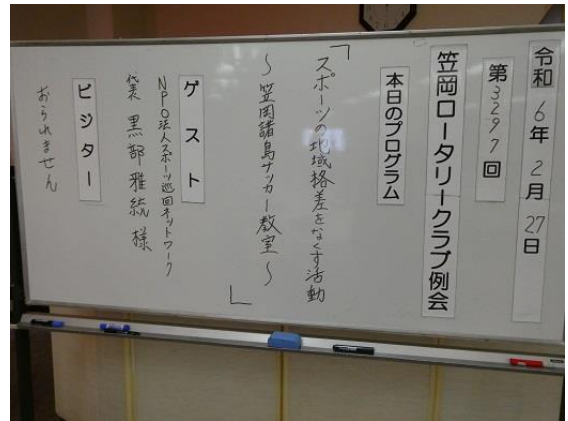 令和6年2月27日
第3297回
笠岡ロータリークラブ例会
本日のプログラム
「スポーツの地域格差をなくす活動
～笠岡諸島サッカー教室～」
ゲスト
NPO法人スポーツ巡回ネットワーク
代表 黒部雅統 様
ビジター
おられません